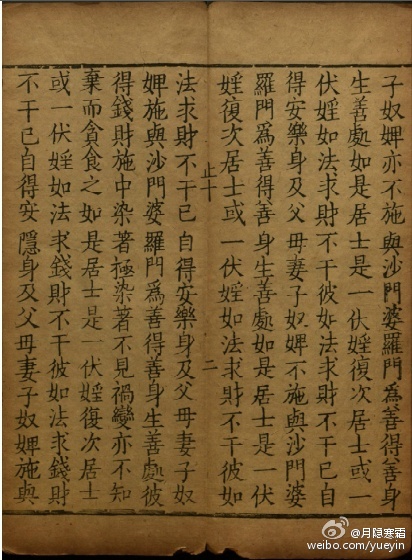 子奴婢亦不施與沙門婆羅門爲善得善身
生善處如是居士是一伏婬復次居士或一
伏婬如法求財不干彼如法求財不干已自
得安樂身及父母妻子奴婢不施與沙門婆
羅門爲善得善身生善處如是居士是一伏
婬復次居士或一伏婬如法求財不干彼如
止十 二
法求財不干已自得安樂身及父母妻子奴
婢施與沙門婆羅門爲善得善身生善處彼
得錢財施中染著極染著不見禍變亦不知
棄而貪食之如是居士是一伏婬復次居士
或一伏婬如法求錢財不干彼如法求錢財
不干已自得安隱身及父母妻子奴婢施與
@月隐寒霜
weibo.com/yueyin